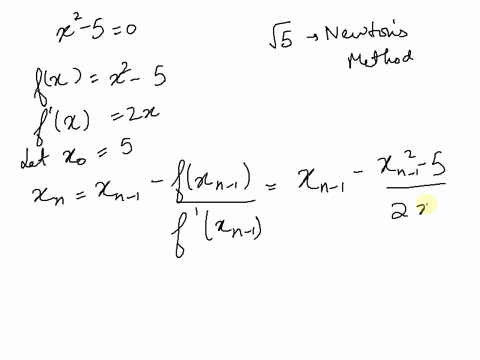 x² - 5 = 0
√5 → Newton's
Method
f(x) = x² - 5
f'(x) = 2x
Let x₀ = 5
xₙ = xₙ₋₁ - f(xₙ₋₁)/f'(xₙ₋₁) = xₙ₋₁ - (xₙ₋₁² - 5)/2